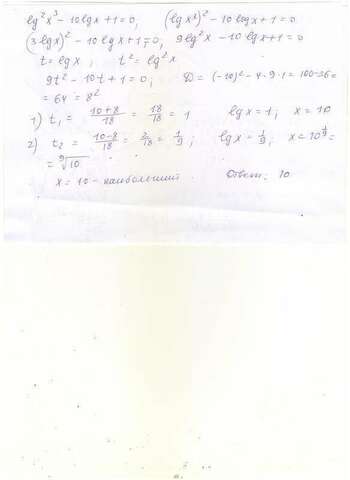 lg²x³ - 10 lgx + 1 = 0, (lg x³)² - 10 lgx + 1 = 0
(3 lgx)² - 10 lgx + 1 = 0, 9 lg²x - 10 lgx + 1 = 0
t = lgx, t² = lg²x
9t² - 10t + 1 = 0; D = (-10)² - 4·9·1 = 100 - 36 =
= 64 = 8²
1) t₁ = (10+8)/18 = 18/18 = 1 lgx = 1; x = 10
2) t₂ = (10-8)/18 = 2/18 = 1/9; lgx = 1/9; x = 10^(1/9) =
= ⁹√10
x = 10 - наибольший Ответ: 10